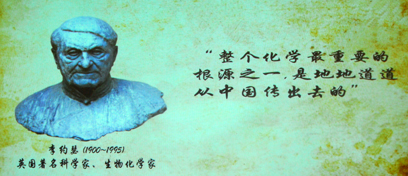 “整个化学最重要的
根源之一，是地地道道
从中国传出去的”
李约瑟 (1900~1995)
英国著名科学家、生物化学家